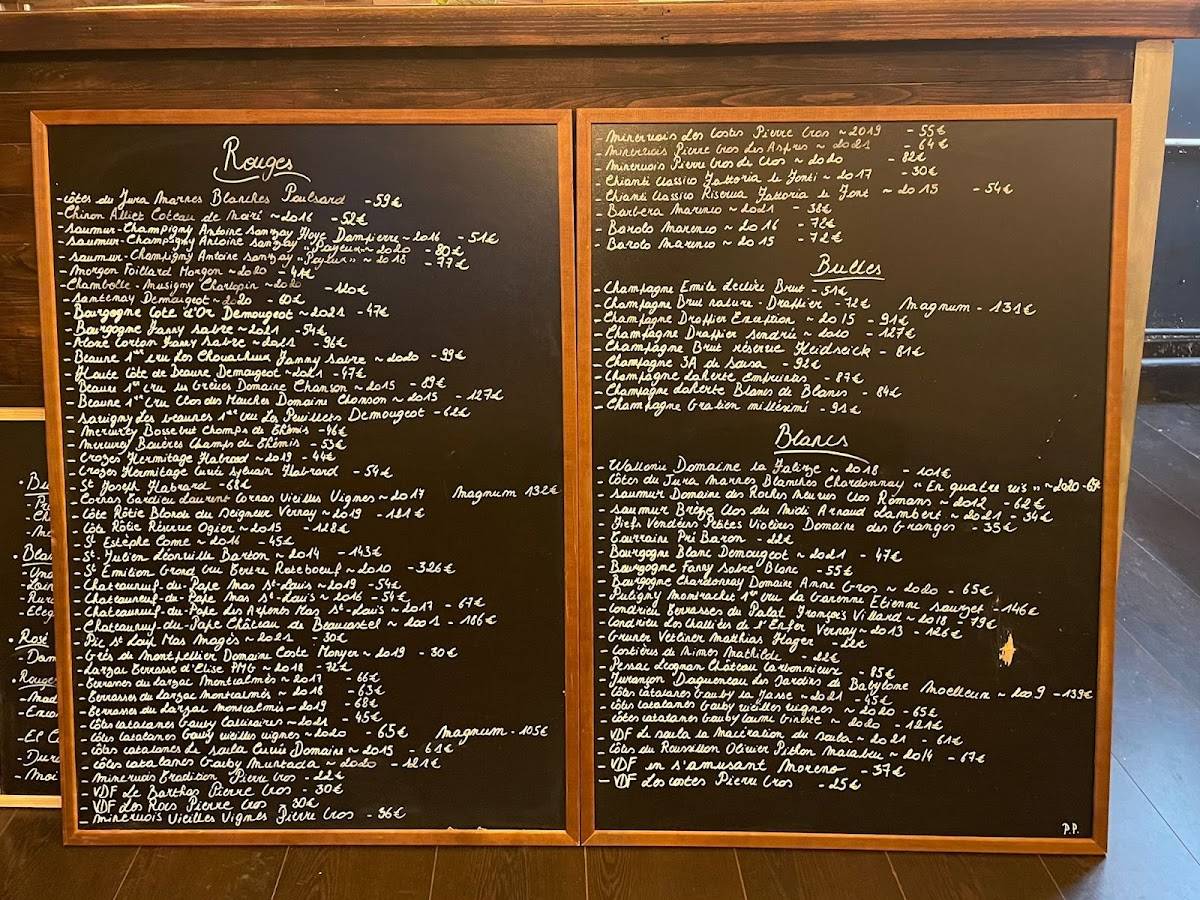 Rouges
-Côtes du Jura Marnes Blanches Poulsard -59€
-Chinon Alliet Coteau de Noiré ~2016 -52€
-Saumur-Champigny Antoine Sanzay Hoye Dampierre~2016 -51€
-Saumur-Champigny Antoine Sanzay "Poyeux"~2020 -80€
-Saumur-Champigny Antoine Sanzay "Poyeux" ~2018 -77€
-Morgon Foillard Morgon ~2020 -
-Chambolle-Musigny Charlopin ~2020 -120€
-Santenay Demougeot ~2020 -60€
-Bourgogne Côte d'Or Demougeot ~2021 -47€
-Bourgogne Fanny Sabre ~2021 -54€
-Aloxe Corton Fanny Sabre ~2021 -96€
-Beaune 1er cru Les Chouacheux Fanny Sabre ~2020 -99€
-Haute Côte de Beaune Demougeot ~2021 -47€
-Beaune 1er cru les Grèves Domaine Chanson ~2015 -89€
-Beaune 1er Cru Clos des Mouches Domaine Chanson ~2015 -127€
-Savigny les beaunes 1er cru Les Peuillets Demougeot -62€
-Mercurey Bossebut Champs de Thémis -46€
-Mercurey Bouères Champs de Thémis -53€
-Crozes Hermitage Habrard ~2019 -44€
-Crozes Hermitage Cuvée Sylvain Habrard -54€
-St Joseph Habrard -68€
-Cornas Tardieu Laurent Cornas Vieilles Vignes ~2017 Magnum 132€
-Côte Rôtie Blonde du Seigneur Vernay ~2019 -121€
-Côte Rôtie Réserve Ogier ~2015 -128€
-St Estèphe Come ~2016 -45€
-St. Julien Léoville Barton ~2014 -143€
-St Emilion Grand Cru Tertre Roteboeuf ~2010 -326€
-Chateauneuf-du-Pape Mas St-Louis ~2019 -54€
-Chateauneuf-du-Pape Mas St-Louis ~2016 -54€
-Chateauneuf-du-Pape des Arpents Mas St-Louis ~2017 -67€
-Chateauneuf-du-Pape Château de Beaucastel ~2001 -186€
-Pic St Loup Mas Magès ~2021 -30€
-Grés de Montpellier Domaine Coste Moynier ~2019 -30€
-Larzac Terrasse d'Elise PMG ~2018 -72€
-Terrasses du Larzac Montcalmès ~2017 -66€
-Terrasses du Larzac Montcalmès ~2018 -63€
-Terrasses du Larzac Montcalmès ~2019 -68€
-Côtes Catalanes Gauby Calcinaires ~2021 -45€
-Côtes Catalanes Gauby vieilles vignes ~2020 -65€ Magnum -105€
-Côtes Catalanes de Saula Cuvée Domaine ~2015 -61€
-Côtes Catalanes Gauby Muntada ~2020 -121€
-Minervois Tradition Pierre Cros -22€
-VDF Le Barthas Pierre Cros -30€
-VDF Les Rocs Pierre Cros -30€
-Minervois Vieilles Vignes Pierre Cros -36€
-Minervois Les Costes Pierre Cros ~2019 -55€
-Minervois Pierre Cros Les Aspres ~2021 -64€
-Minervois Pierre Cros de Cros ~2020 -82€
-Chianti Classico Fattoria le Fonti ~2017 -30€
-Chianti Classico Riserva Fattoria le Font ~2015 -54€
-Barbera Marenco ~2021 -38€
-Barolo Marenco ~2016 -72€
-Barolo Marenco ~2015 -72€
Bulles
-Champagne Emile Leclère Brut -51€
-Champagne Brut nature - Drappier -72€ Magnum -131€
-Champagne Drappier Exception ~2015 -91€
-Champagne Drappier Sendrée ~2010 -127€
-Champagne Brut réserve Heidseick -81€
-Champagne 3A de Sousa -92€
-Champagne Laherte Empreintes -87€
-Champagne Laherte Blancs de Blancs -84€
-Champagne Gratien millésimé -91€
Blancs
-Wallonie Domaine la Falize ~2018 -101€
-Côtes du Jura Marnes Blanches Chardonnay "En quatre vis" ~2020 -69€
-Saumur Domaine des Roches Neuves Clos Romans ~2012 -62€
-Saumur Brézé Clos du Midi Arnaud Lambert ~2021 -34€
-Fiefs Vendéens Petites Violères Domaine des Granges -35€
-Touraine Pré Baron -22€
-Bourgogne Blanc Demougeot ~2021 -47€
-Bourgogne Fanny Sabre Blanc -55€
-Bourgogne Chardonnay Domaine Anne Gros ~2020 -65€
-Puligny Montrachet 1er cru La Garenne Etienne Sauzet -146€
-Condrieu Terrasses du Palat François Villard ~2018 -79€
-Condrieu Les Chaillées de l'Enfer Vernay ~2013 -126€
-Gruner Vetliner Mathias Hager -22€
-Costières de Nimes Mathilde -22€
-Pessac Leognan Château Carbonnieux -85€
-Jurançon Dagueneau Les Jardins de Babylone Moelleux ~2009 -139€
-Côtes Catalanes Gauby la Jasse ~2021 -45€
-Côtes Catalanes Gauby vieilles vignes ~2020 -65€
-Côtes Catalanes Gauby Coume Gineste ~2020 -121€
-VDF de Saula la Macération du Saula ~2021 -61€
-Côtes du Roussillon Olivier Pithon Maccabeu ~2014 -67€
-VDF en s'amusant Moreno -37€
-VDF Les Costes Pierre Cros -25€
P.P.
• Bu
• Blan
• Rosé
-Dom
• Rouges
-Mad
-El C
-Dur
-Moi